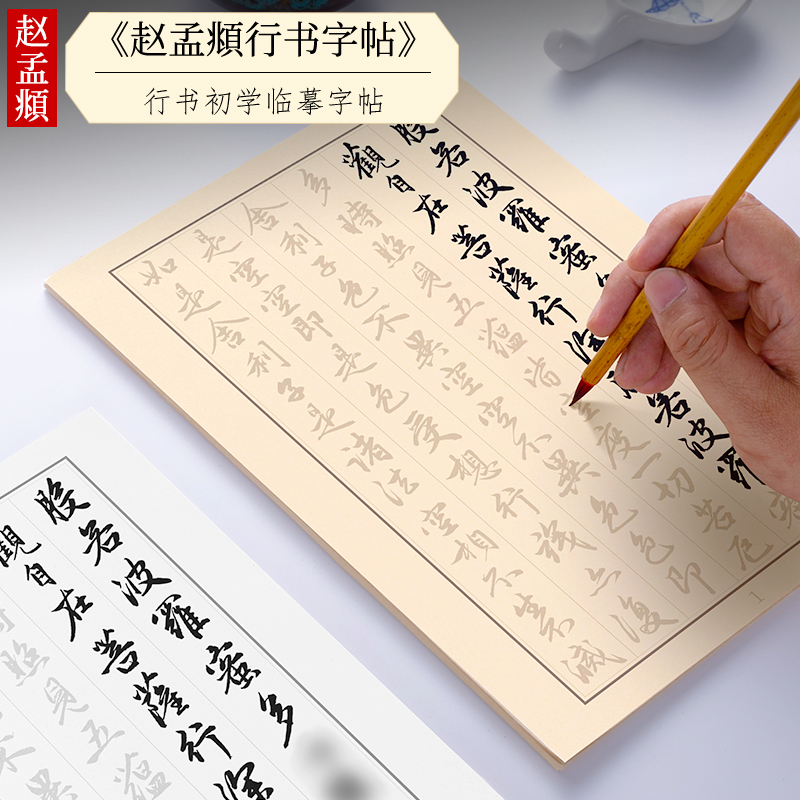 赵孟頫
《赵孟頫行书字帖》
行书初学临摹字帖
般若波羅蜜
觀自在菩薩行深
若波羅
多時照見五蘊皆空度一切苦厄
舍利子色不異空空不異色色即
是空空即是色受想行識亦復
如是舍利子是諸法空相不生不滅
1
般若波羅蜜多
觀自在菩薩行深
時照見五蘊
不異